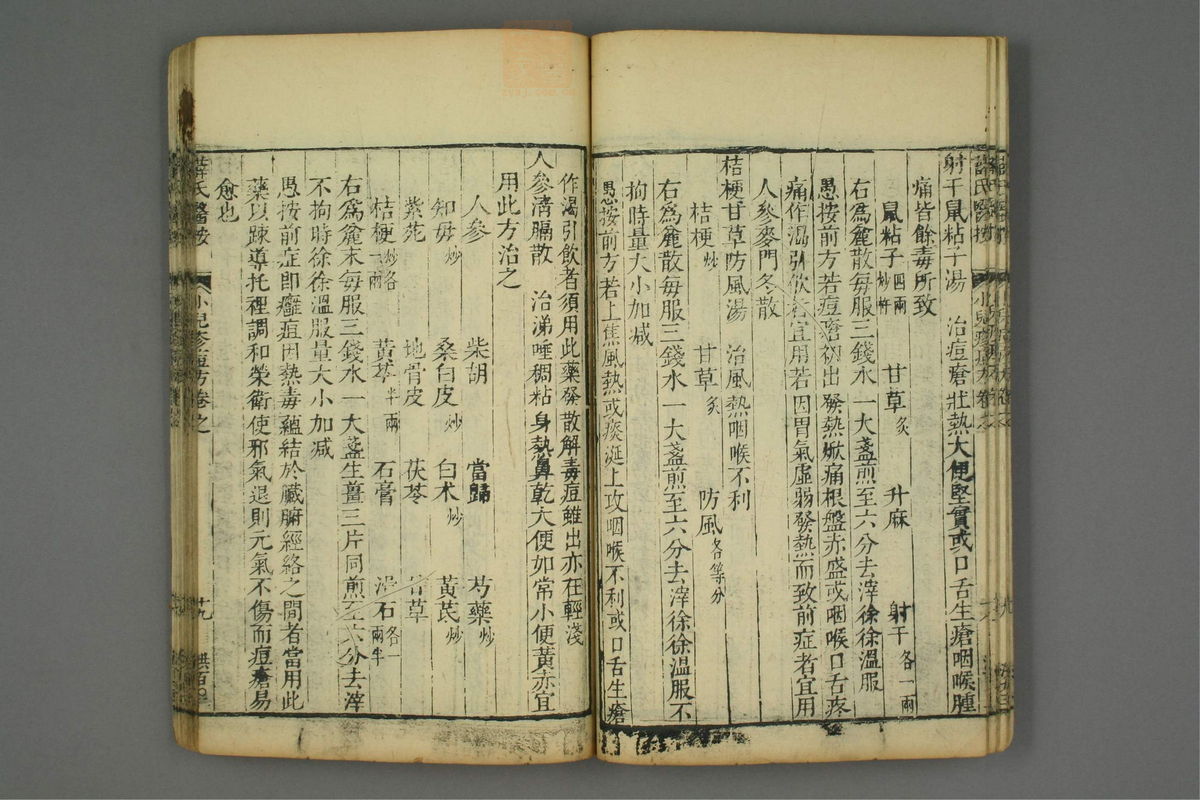 射干鼠粘子湯 治痘瘡壯熱大便堅實或口舌生瘡咽喉腫
痛皆餘毒所致
鼠粘子四兩炒杵 甘草炙 升麻 射干各一兩
右爲麄散每服三錢水一大盞煎至六分去滓徐徐溫服
愚按前方若痘瘡初出發熱焮痛根盤赤盛或咽喉口舌疼
痛作渴引飲者宜用若因胃氣虛弱發熱而致前症者宜用
人參麥門冬散
桔梗甘草防風湯 治風熱咽喉不利
桔梗炒 甘草炙 防風各等分
右爲麄散每服三錢水一大盞煎至六分去滓徐徐溫服不
拘時量大小加减
愚按前方若上焦風熱或痰涎上攻咽喉不利或口舌生瘡
作渴引飲者須用此藥發散解毒痘雖出亦在輕淺
人參清膈散 治涕唾稠粘身熱鼻乾大便如常小便黃赤宜
用此方治之
人參 柴胡 當歸 芍藥炒
知母炒 桑白皮炒 白术炒 黃芪炒
紫菀 地骨皮 茯苓 甘草
桔梗炒各一兩 黃芩半兩 石膏 滑石各一兩半
右爲麄末每服三錢水一大盞生薑三片同煎至六分去滓
不拘時徐徐溫服量大小加减
愚按前症即癰痘因熱毒蘊結於臟腑經絡之間者當用此
藥以踈導托裡調和榮衛使邪氣退則元氣不傷而痘瘡易
愈也
薛氏醫按 小兒疹痘方卷之 廿九